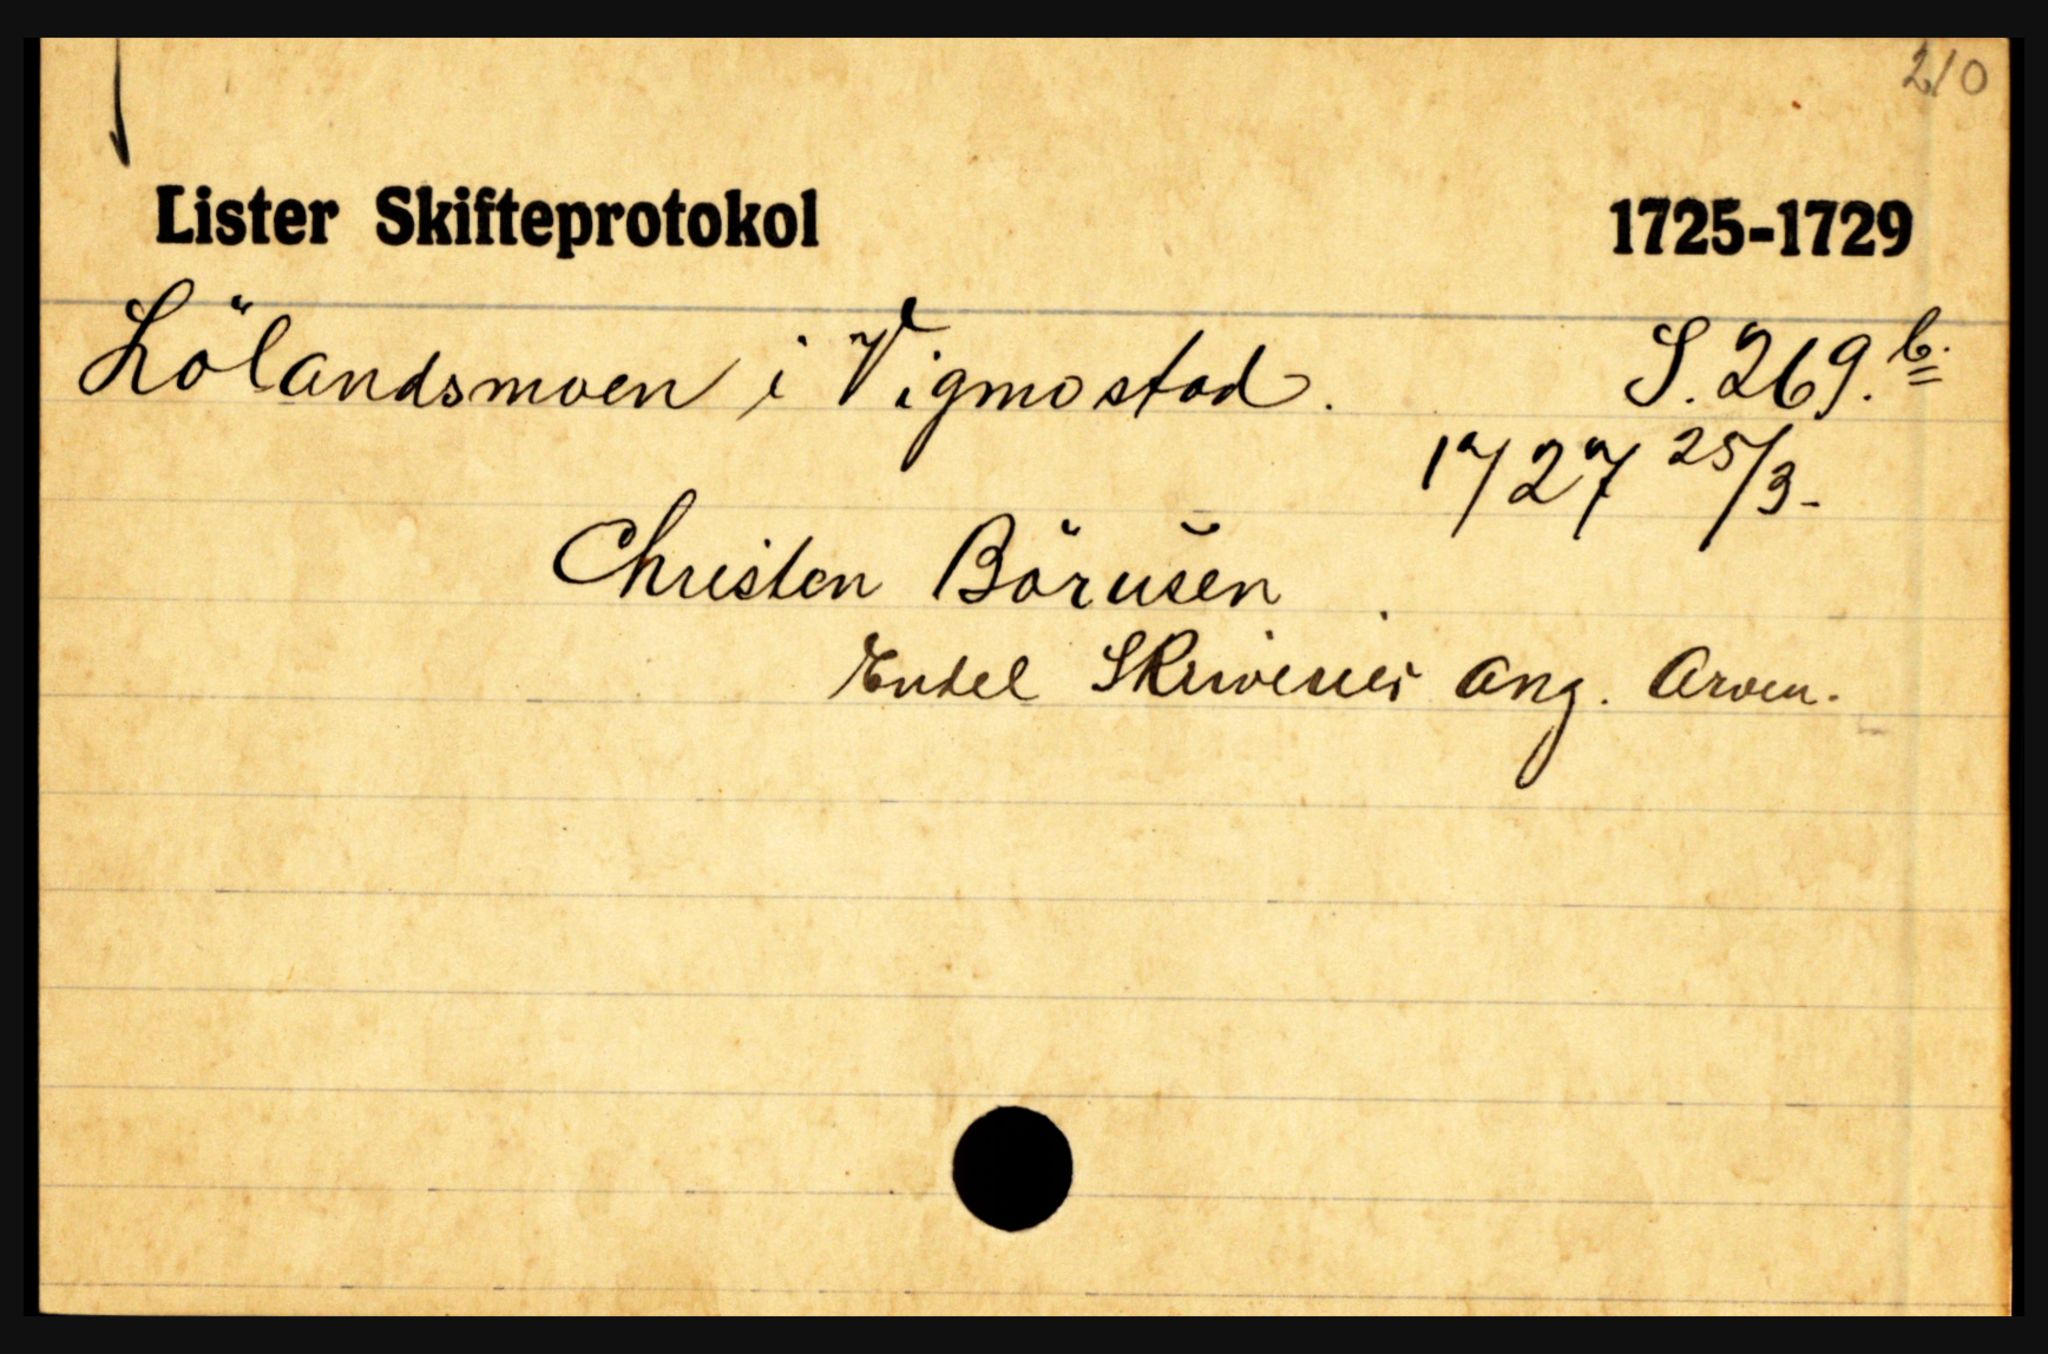 210
Lister Skifteprotokol 1725-1729
Lölandsmoen i Vigmostad. S. 269.b.
1727 25/3-
Christen Börusen
Endel Skriverier ang. Arven.